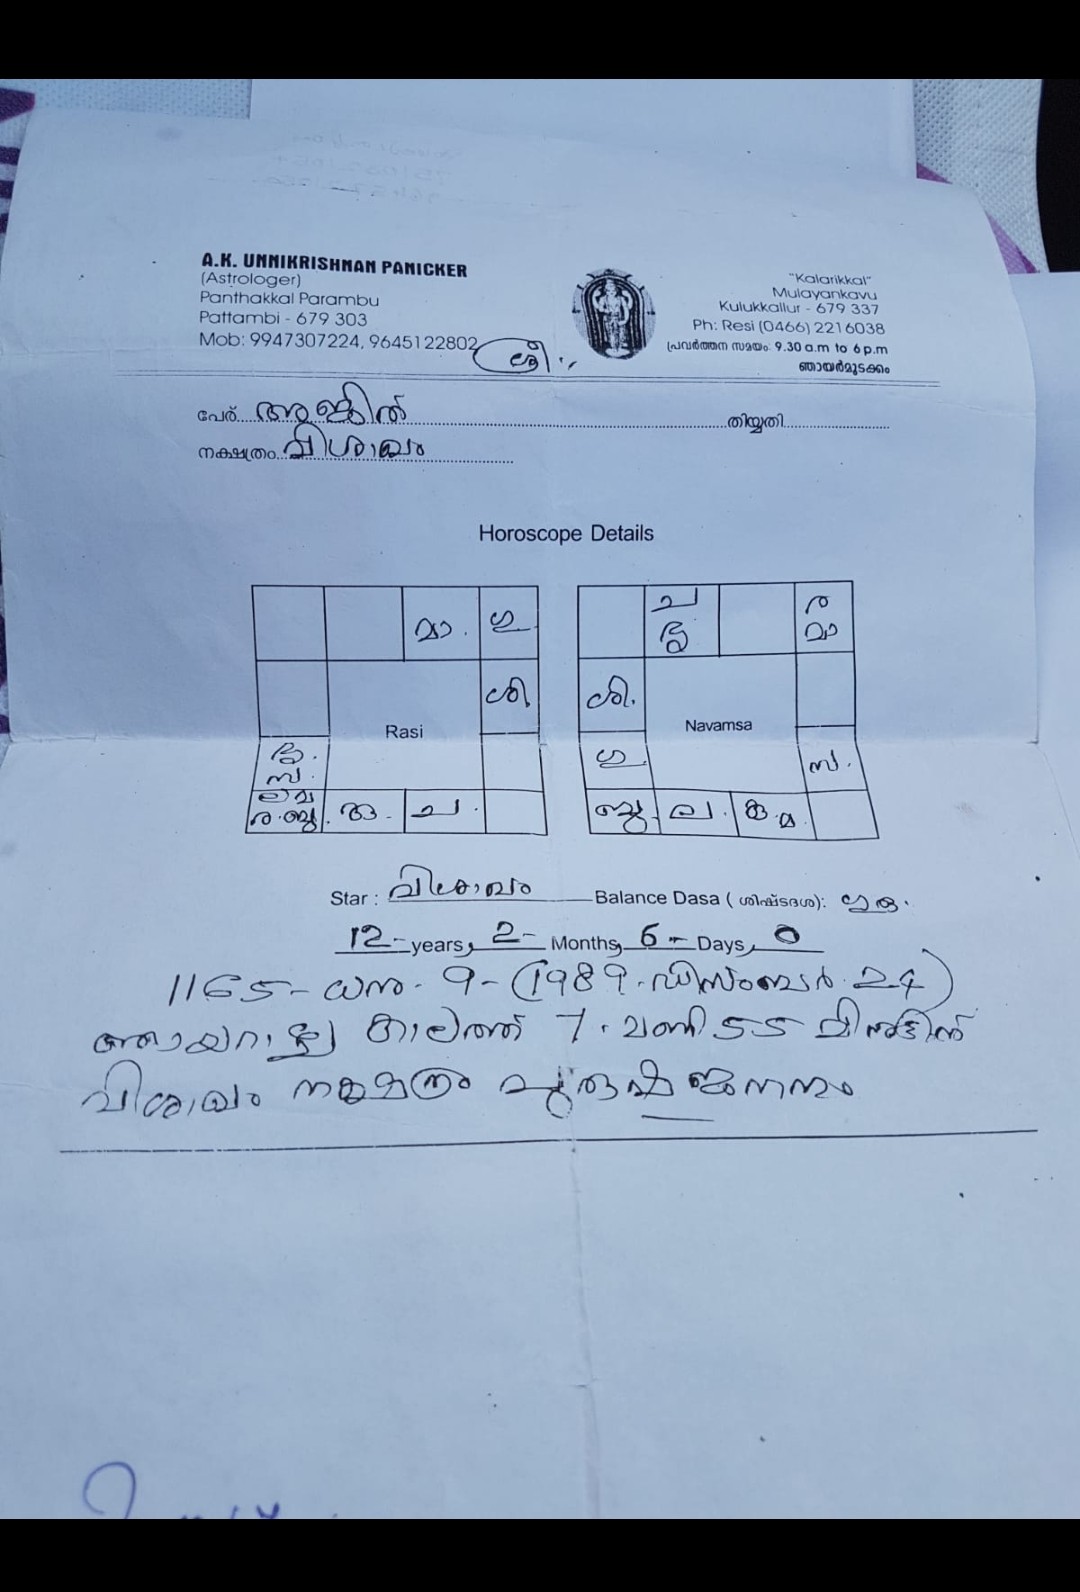 A.K. UNNIKRISHNAN PANICKER
(Astrologer)
Panthakkal Parambu
Pattambi - 679 303
Mob: 9947307224, 9645122802
"Kalarikkal"
Mulayankavu
Kulukkallur - 679 337
Ph: Resi (0466) 2216038
പ്രവർത്തന സമയം: 9.30 a.m to 6 p.m
ഞായർമുടക്കം
ശ്രീ
പേര് തിയ്യതി
നക്ഷത്രം വിശാഖം
Horoscope Details
മാ. ഗു
ശി.
Rasi
സ.
ര. ബു ച.
ച ര
മാ
ശി.
Navamsa
ഗു സ.
ബു ല.
Star: വിശാഖം Balance Dasa (ശിഷ്ടദശ):
12- years, 2- Months, 6- Days, 0
1165- ധനു. 9- (1989. ഡിസംബർ. 24)
ഞായറാഴ്ച കാലത്ത് 7. മണി 55 മിനുട്ടിന്
വിശാഖം നക്ഷത്രം പുരുഷ ജനനം